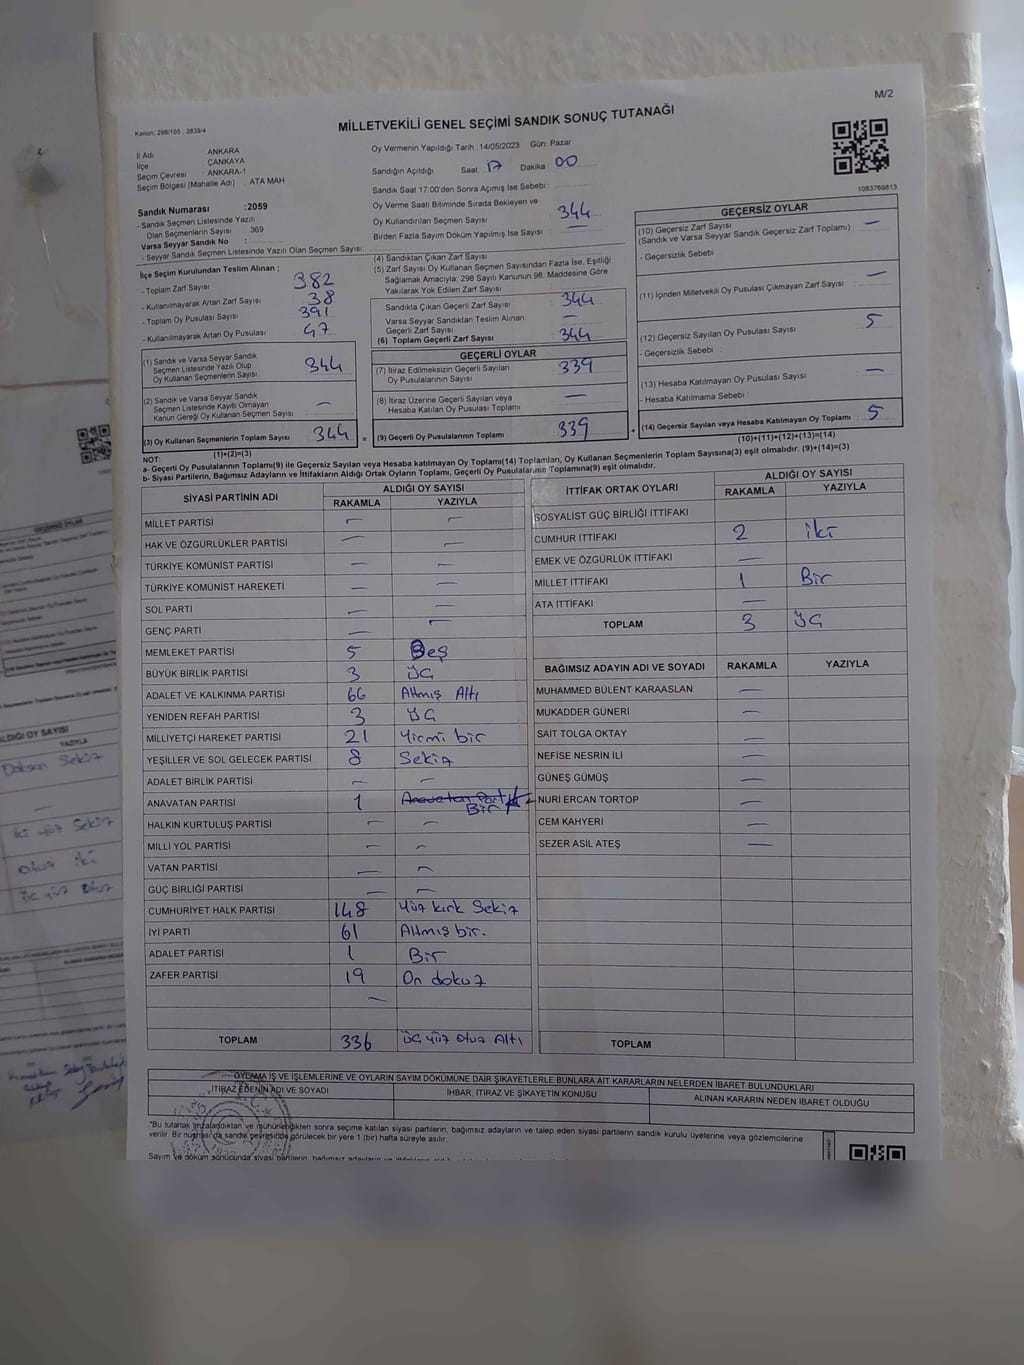 M/2
Kanun: 298/105 , 2839/4
MİLLETVEKİLİ GENEL SEÇİMİ SANDIK SONUÇ TUTANAĞI
İl Adı ANKARA
İlçe ÇANKAYA
Seçim Çevresi ANKARA-1
Seçim Bölgesi (Mahalle Adı) : ATA MAH
Sandık Numarası :2059
- Sandık Seçmen Listesinde Yazılı
Olan Seçmenlerin Sayısı : 369
Varsa Seyyar Sandık No :
- Seyyar Sandık Seçmen Listesinde Yazılı Olan Seçmen Sayısı:
Oy Vermenin Yapıldığı Tarih :14/05/2023 Gün: Pazar
Sandığın Açıldığı Saat: 17 Dakika 00
Sandık Saat 17:00'den Sonra Açımış İse Sebebi:
Oy Verme Saati Bitiminde Sırada Bekleyen ve
Oy Kullandırılan Seçmen Sayısı 344
Birden Fazla Sayım Döküm Yapılmış İse Sayısı : —
1083769813
İlçe Seçim Kurulundan Teslim Alınan ;
- Toplam Zarf Sayısı 382
- Kullanılmayarak Artan Zarf Sayısı 38
- Toplam Oy Pusulası Sayısı 391
- Kullanılmayarak Artan Oy Pusulası 47
(1) Sandık ve Varsa Seyyar Sandık
Seçmen Listesinde Yazılı Olup
Oy Kullanan Seçmenlerin Sayısı 344
(2) Sandık ve Varsa Seyyar Sandık
Seçmen Listesinde Kayıtlı Olmayan
Kanun Gereği Oy Kullanan Seçmen Sayısı —
(3) Oy Kullanan Seçmenlerin Toplam Sayısı 344
(1)+(2)=(3)
(4) Sandıktan Çıkan Zarf Sayısı
(5) Zarf Sayısı Oy Kullanan Seçmen Sayısından Fazla İse, Eşitliği
Sağlamak Amacıyla; 298 Sayılı Kanunun 98. Maddesine Göre
Yakılarak Yok Edilen Zarf Sayısı:
Sandıkta Çıkan Geçerli Zarf Sayısı 344
Varsa Seyyar Sandıktan Teslim Alınan
Geçerli Zarf Sayısı —
(6) Toplam Geçerli Zarf Sayısı 344
GEÇERLİ OYLAR
(7) İtiraz Edilmeksizin Geçerli Sayılan
Oy Pusulalarının Sayısı 339
(8) İtiraz Üzerine Geçerli Sayılan veya
Hesaba Katılan Oy Pusulası Toplamı —
= (9) Geçerli Oy Pusulalarının Toplamı 339
GEÇERSİZ OYLAR
(10) Geçersiz Zarf Sayısı —
(Sandık ve Varsa Seyyar Sandık Geçersiz Zarf Toplamı)
- Geçersizlik Sebebi
(11) İçinden Milletvekili Oy Pusulası Çıkmayan Zarf Sayısı : —
(12) Geçersiz Sayılan Oy Pusulası Sayısı 5
- Geçersizlik Sebebi :
(13) Hesaba Katılmayan Oy Pusulası Sayısı —
- Hesaba Katılmama Sebebi :
+ (14) Geçersiz Sayılan veya Hesaba Katılmayan Oy Toplamı 5
(10)+(11)+(12)+(13)=(14)
NOT:
a- Geçerli Oy Pusulalarının Toplamı(9) ile Geçersiz Sayılan veya Hesaba katılmayan Oy Toplamı(14) Toplamları, Oy Kullanan Seçmenlerin Toplam Sayısına(3) eşit olmalıdır. (9)+(14)=(3)
b- Siyasi Partilerin, Bağımsız Adayların ve İttifakların Aldığı Ortak Oyların Toplamı, Geçerli Oy Pusulalarının Toplamına(9) eşit olmalıdır.
SİYASİ PARTİNİN ADI ALDIĞI OY SAYISI
RAKAMLA YAZIYLA
MİLLET PARTİSİ — —
HAK VE ÖZGÜRLÜKLER PARTİSİ — —
TÜRKİYE KOMÜNİST PARTİSİ — —
TÜRKİYE KOMÜNİST HAREKETİ — —
SOL PARTİ — —
GENÇ PARTİ — —
MEMLEKET PARTİSİ 5 Beş
BÜYÜK BİRLİK PARTİSİ 3 Üç
ADALET VE KALKINMA PARTİSİ 66 Altmış Altı
YENİDEN REFAH PARTİSİ 3 Üç
MİLLİYETÇİ HAREKET PARTİSİ 21 Yirmi bir
YEŞİLLER VE SOL GELECEK PARTİSİ 8 Sekiz
ADALET BİRLİK PARTİSİ — —
ANAVATAN PARTİSİ 1 Bir
HALKIN KURTULUŞ PARTİSİ — —
MİLLİ YOL PARTİSİ — —
VATAN PARTİSİ — —
GÜÇ BİRLİĞİ PARTİSİ — —
CUMHURİYET HALK PARTİSİ 148 Yüz kırk Sekiz
İYİ PARTİ 61 Altmış bir.
ADALET PARTİSİ 1 Bir
ZAFER PARTİSİ 19 On dokuz
—
TOPLAM 336 Üç yüz Otuz Altı
İTTİFAK ORTAK OYLARI ALDIĞI OY SAYISI
RAKAMLA YAZIYLA
SOSYALİST GÜÇ BİRLİĞİ İTTİFAKI
CUMHUR İTTİFAKI 2 iki
EMEK VE ÖZGÜRLÜK İTTİFAKI —
MİLLET İTTİFAKI 1 Bir
ATA İTTİFAKI —
TOPLAM 3 Üç
BAĞIMSIZ ADAYIN ADI VE SOYADI RAKAMLA YAZIYLA
MUHAMMED BÜLENT KARAASLAN —
MUKADDER GÜNERİ —
SAİT TOLGA OKTAY —
NEFİSE NESRİN İLİ —
GÜNEŞ GÜMÜŞ —
NURİ ERCAN TORTOP —
CEM KAHYERİ —
SEZER ASİL ATEŞ —
TOPLAM
OYLAMA İŞ VE İŞLEMLERİNE VE OYLARIN SAYIM DÖKÜMÜNE DAİR ŞİKAYETLERLE BUNLARA AİT KARARLARIN NELERDEN İBARET BULUNDUKLARI
İTİRAZ EDENİN ADI VE SOYADI İHBAR, İTİRAZ VE ŞİKAYETİN KONUSU ALINAN KARARIN NEDEN İBARET OLDUĞU
*Bu tutanak imzalandıktan ve mühürlendikten sonra seçime katılan siyasi partilerin, bağımsız adayların ve talep eden siyasi partilerin sandık kurulu üyelerine veya gözlemcilerine
verilir. Bir nüshası da sandık çevresinde görülecek bir yere 1 (bir) hafta süreyle asılır.
ALDIĞI OY SAYISI
YAZIYLA
Doksan Sekiz
—
iki yüz Sekiz
Otuz iki
Üç yüz Otuz